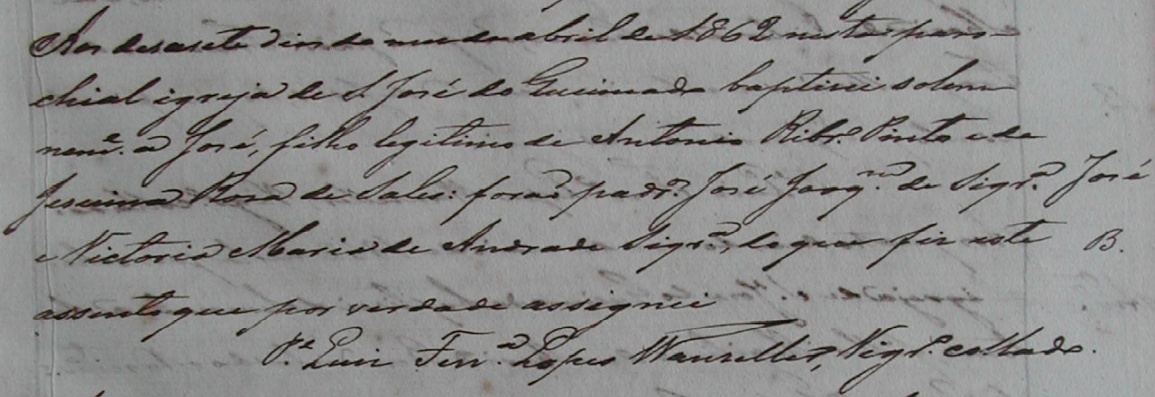 Aos desasete dias do mes de abril de 1862 nesta paro-
chial igreja de S. José do Queimado baptisei solem
nem.e a José, filho legitimo de Antonio Ribr.o Pinto e de
Jesuina Rosa de Sales: forão padr.os José Joaq.m de Siqr.a José
e Victoria Maria de Andrade Siqr.a, do que fiz este B.
assento que por verdade assignei
P.e Luiz Fer.a Lopes Wanzeller, Vigr.o collado.